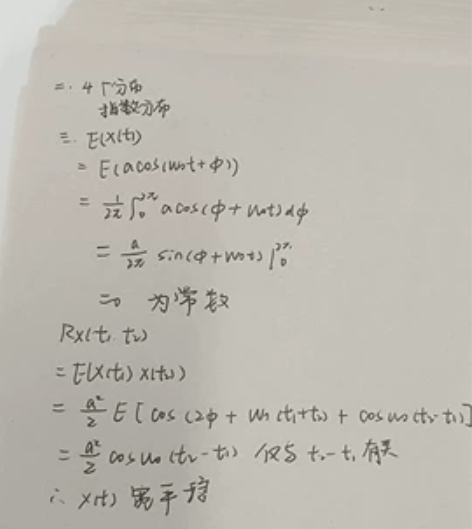 二. 4 Γ分布
指数分布
三. E(X(t))
= E(acos(w₀t+φ))
= 1/2π ∫₀^2π acos(φ+w₀t)dφ
= a/2π sin(φ+w₀t)|₀^2π
=0 为常数
Rx(t₁ t₂)
= E(X(t₁) X(t₂))
= a²/2 E[cos(2φ + w₀(t₁+t₂) + cosw₀(t₂-t₁)]
= a²/2 cosw₀(t₂-t₁) 仅与 t₂-t₁ 有关
∴ X(t) 宽平稳